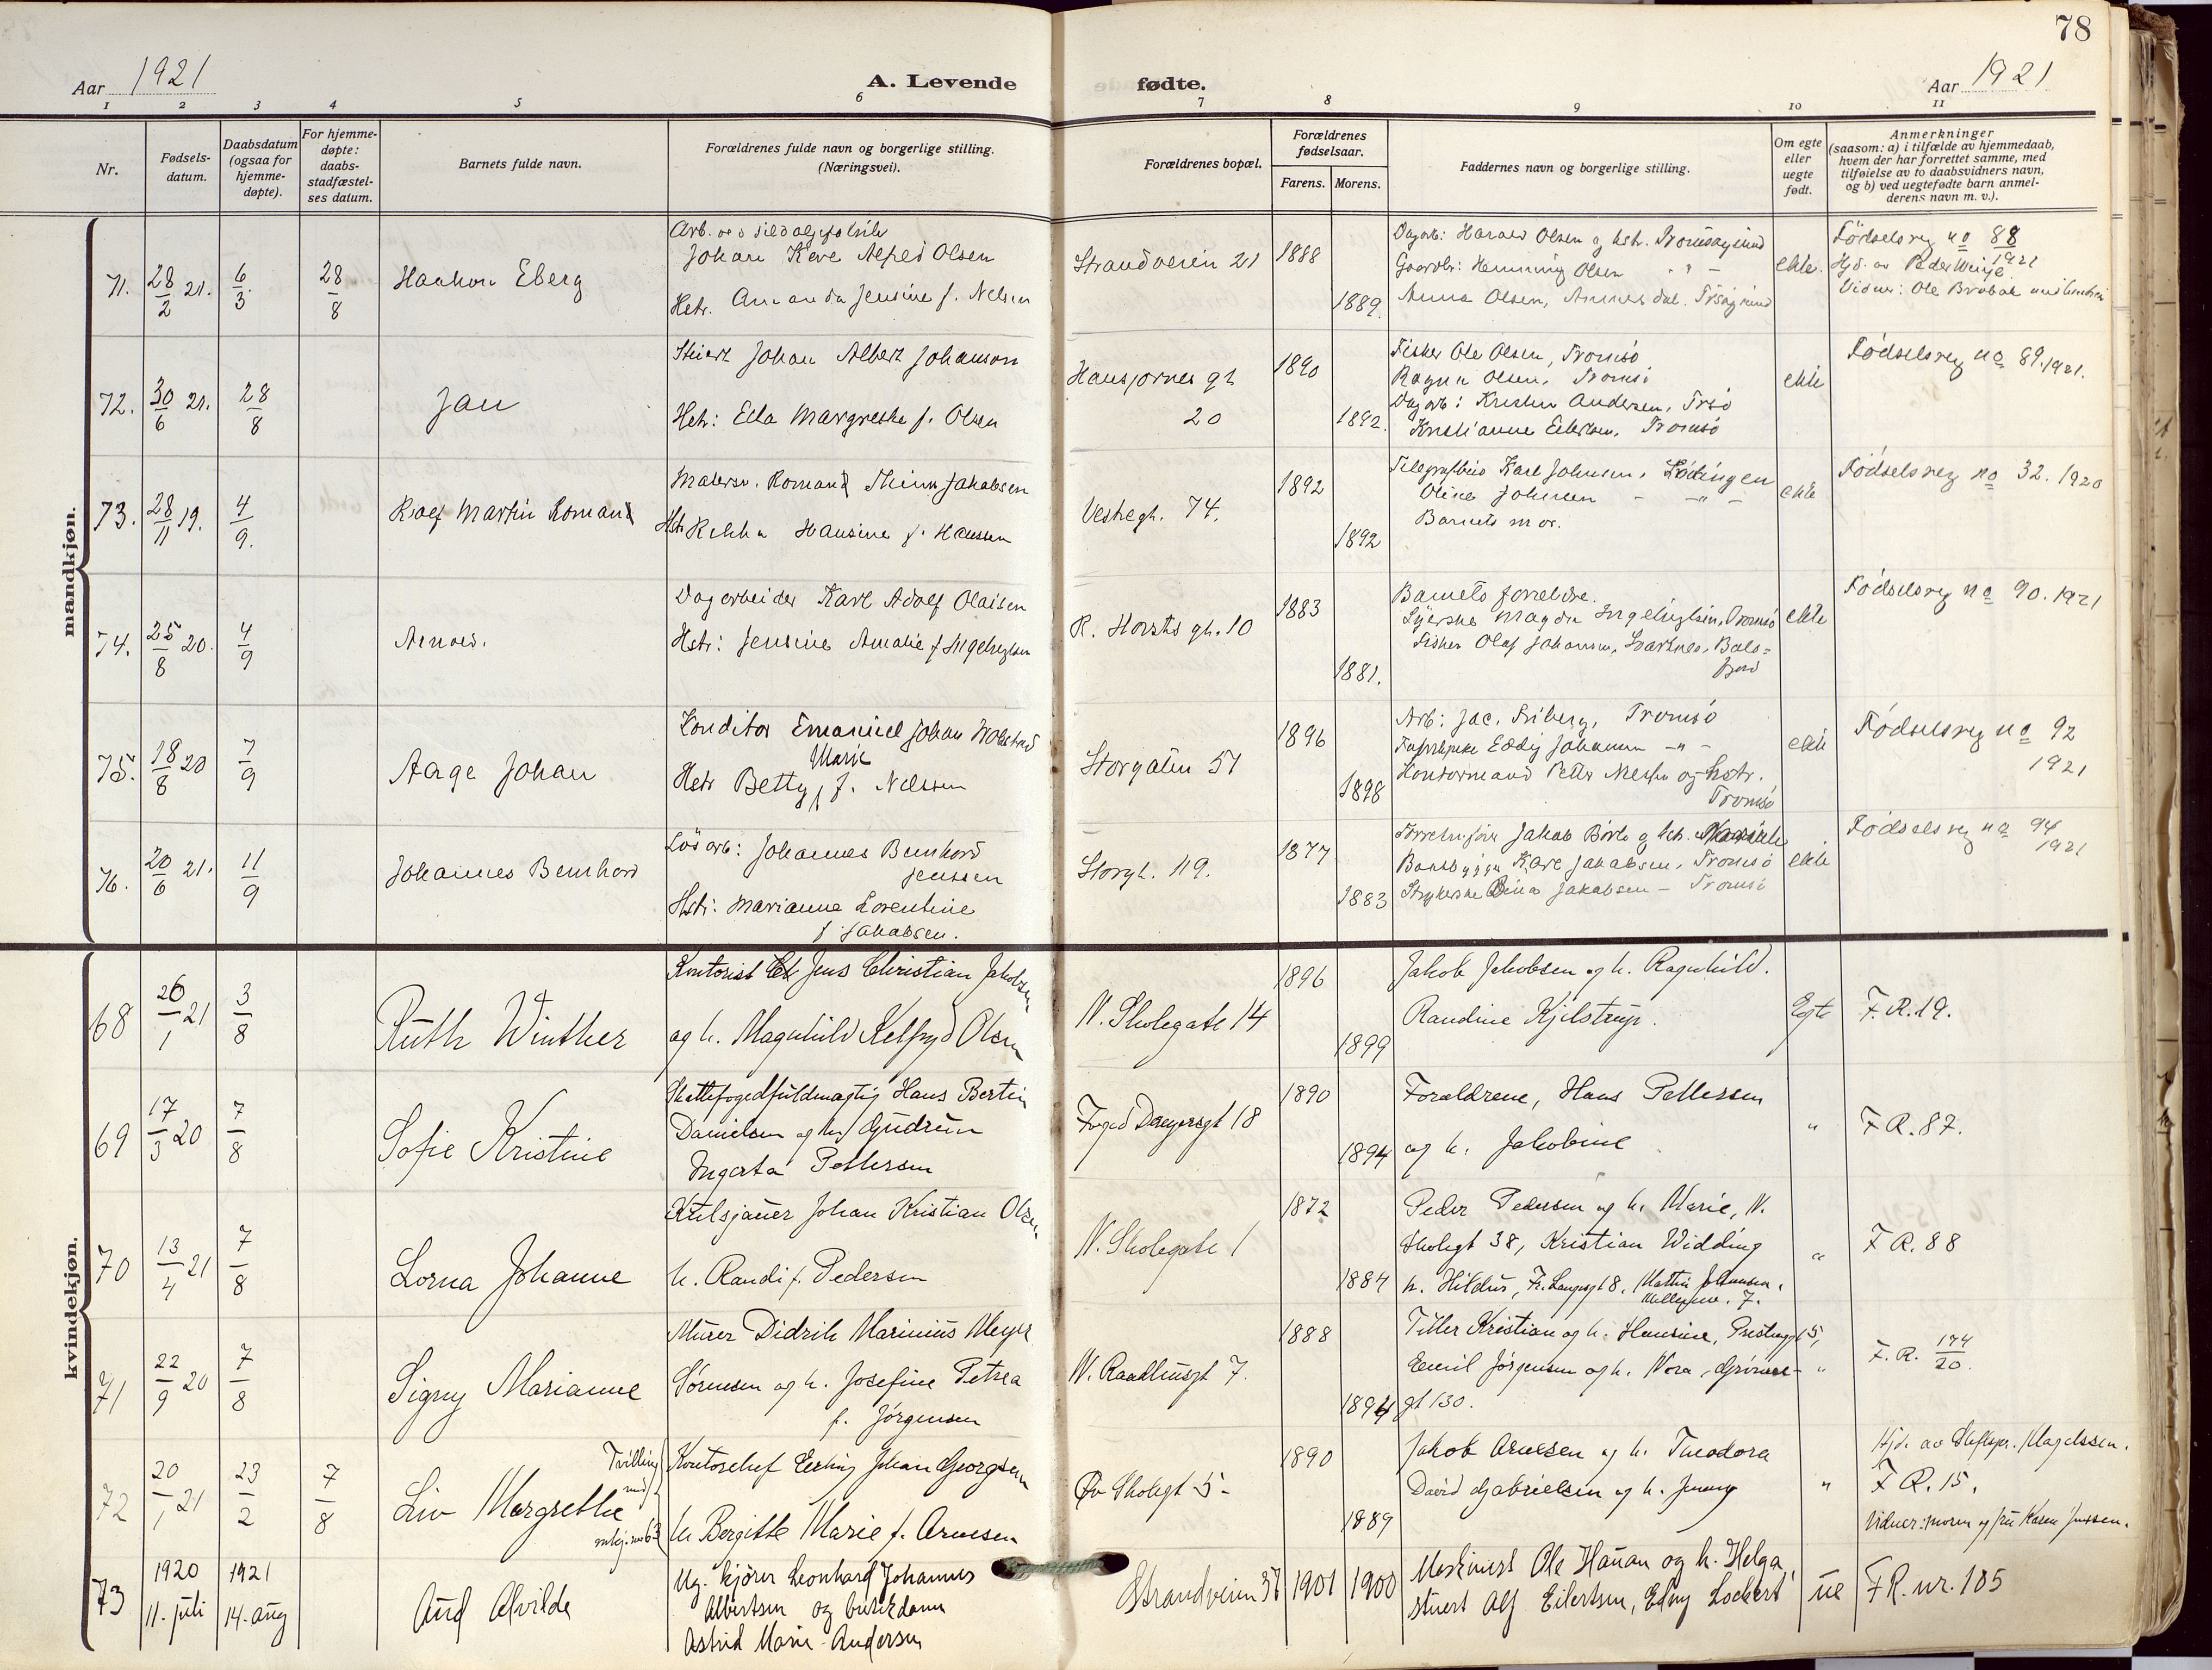 78
Aar 1921
A. Levende fødte.
Aar 1921
1 2 3 4 5 6 7 8 9 10 11
Nr.
Fødsels-
datum.
Daabsdatum
(ogsaa for
hjemme-
døpte).
For hjemme-
døpte:
daabs-
stadfæstel-
ses datum.
Barnets fulde navn.
Forældrenes fulde navn og borgerlige stilling.
(Næringsvei).
Forældrenes bopæl.
Forældrenes
fødselsaar.
Farens. Morens.
Faddernes navn og borgerlige stilling.
Om egte
eller
uegte
født.
Anmerkninger
(saasom: a) i tilfælde av hjemmedaab,
hvem der har forrettet samme, med
tilføielse av to daabsvidners navn,
og b) ved uegtefødte barn anmel-
derens navn m. v.).
mandkjøn.
71. 28/2 21. 6/3. 28/8
Haakon Eberg
Johan Alfred Olsen
Hstr. Amanda Jensine f. Nilsen
Strandveien 21
1888
1889.
Harald Olsen og hstr. Tromsøysund
Henning Olsen
Anna Olsen,
ekte.
Fødselsreg no 88
1921
Hjd. av Peder Weiye
Vidner: Ole Brobak
72. 30/6 21. 28/8
Jan
Johan Albert Johanson
Hstr: Ella Margrethe f. Olsen
20
1890
1892.
Fisker Ole Olsen, Tromsø
Ragna Olsen, Tromsø
Dagarb: Kristen Andersen, Trsø
Kristianne Eilertsen, Tromsø
ekte
Fødselsreg no 89. 1921.
73. 28/11 19. 4/9.
Rolf Martin Roman
Jakobsen
Hstr Rikka Hansine f. Hanssen
Vestregt. 74.
1892
1892
Karl Johnsen, Lødingen
Oline Johnsen - " -
Barnets mor.
ekte
Fødselsreg no 32. 1920
74. 25/8 20. 4/9
Arnold.
Dagarbeider Karl Adolf Olaisen
Hstr: Jensine Amalie f Ingebrigtsen
R. Horsts gt. 10
1883
1881.
Barnets forældre.
Syerske Magda Ingebrigtsen, Tromsø
Fisker Olaf Johansen, Svartnes, Bals=
fjord
ekte
Fødselsreg no 90. 1921
75. 18/8 20 7/9
Aage Johan
Konditor Emanuel Johan
Marie
Hstr Betty f. Nilsen
Storgaten 51
1896
1898
Arb: Jac. Friberg, Tromsø
Eddy Johansen - " -
og hstr.
Tromsø
ekte
Fødselsreg no 92
1921
76. 20/6 21. 11/9
Johannes Bernhard
Løsarb: Johannes Bernhard
Jenssen
Hstr: Marianne Lorentine
f Jakobsen.
Storgt. 119.
1877
1883
Jakob
Karl Jakobsen, Tromsø
Strykerske Jakobsen - Tromsø
ekte
Fødselsreg no 94
1921
kvindekjøn.
68 26/1 21 3/8
Ruth Winther
Kontorist Jens Christian Jakobsen
og h. Magnhild Olsen
N. Skolegate 14
1896
1899
Jakob Jakobsen og h. Ragnhild.
Randine Kjelstrup.
Egte
F. R. 19.
69 17/3 20 7/8
Sofie Kristine
Skattefogedfuldmægtig Hans Bertin
Danielsen og h. Gudrun
Ingarta Pettersen
Foged Dreyersgt 18
1890
1894
Forældrene, Hans Pettersen
og h. Jakobine
"
F R. 87.
70 13/4 21 7/8
Lorna Johanne
Kulsjauer Johan Kristian Olsen
h. Randi f. Pedersen
N. Skolegate 1
1872
1884
Peder Pedersen og h. Marie, N.
Skolegt 38, Kristian Widding
h. Hildur, Fr. Langesgt 8.
"
F R. 88
71 22/9 20 7/8
Signy Marianne
Murer Didrik Marinius Meyer
Sørensen og h. Josefine Petrea
f. Jørgensen
N. Raadhusgt 7.
1888
1894
Kristian og h. Hansine,
Emil Jørgensen og h. Nora, Grønne-
gt 130.
"
F. R. 174/20.
72 20/1 21 23/2 7/8
Liv Margrethe
Tvilling
med
Kontorchef Erling Johan Georgsen
h. Bergitte Marie f. Arnesen
Øv Skolegt 5-
1890
1889
Jakob Arnesen og h. Theodora
David Gabrielsen og h. Jenny
"
Hjd. av Stiftspr. Magelssen.
F R. 15.
Vidner: moren og fru Karen Jenssen.
73
1920
11. juli
1921
14. aug
Aud Alvilde
Ug. kjører Leonhard Johannes
Albertsen og butikdame
Astrid Marie Andersen
Strandveien 37
1901 1900
Maskinist Ole Hanan og h. Helga
stuert Alf Eilertsen, Edny Lockert
ue
F R. nr. 105